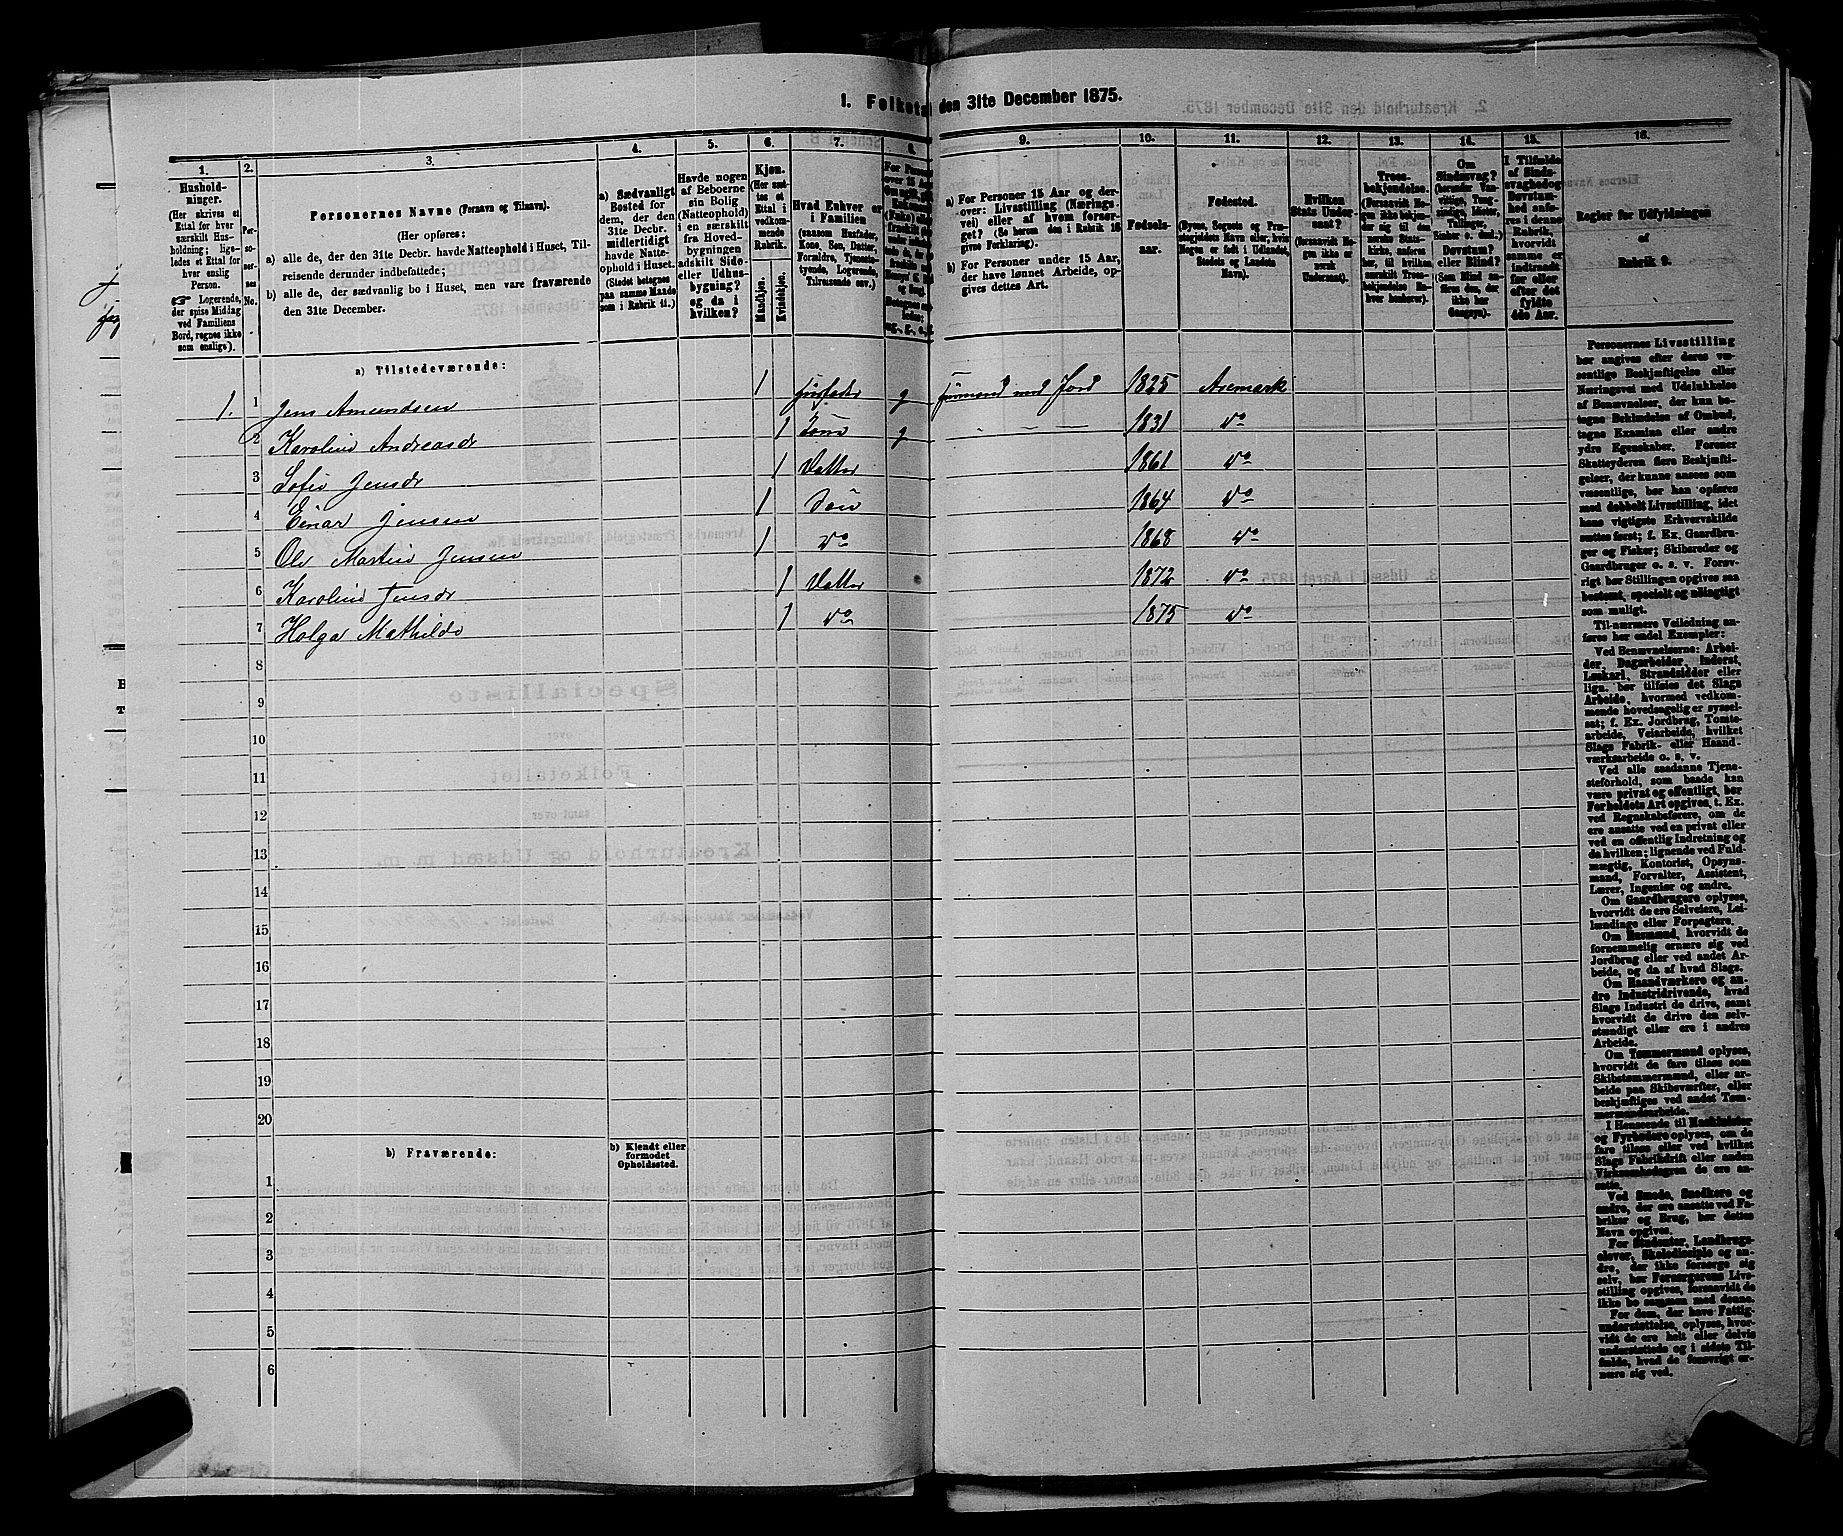 1. Folketal den 31te December 1875.
1.
Hushold-
ninger.
(Her skrives et
Ettal for hver
særskilt Hus-
holdning; lige-
ledes et Ettal for
hver enslig
Person.
Logerende,
der spise Middag
ved Familiens
Bord, regnes ikke
som enslige).
2.
Per-
so-
ner-
nes
No.
3.
Personernes Navne (Fornavn og Tilnavn).
(Her opføres:
a) alle de, der den 31te Decbr. havde Natteophold i Huset, Til-
reisende derunder indbefattede;
b) alle de, der sædvanlig bo i Huset, men vare fraværende
den 31te December.
4.
a) Sædvanligt
Bosted for
dem, der den
31te Decbr.
midlertidigt
havde Natte-
ophold i Huset.
(Stedet betegnes
paa samme Maade
som i Rubrik 11.)
5.
Havde nogen
af Beboerne
sin Bolig
(Natteophold)
i en særskilt
fra Hoved-
bygningen
adskilt Side-
eller Udhus-
bygning?
og da i
hvilken?
6.
Kjøn.
(Her sæt-
tes et
Ettal i
vedkom-
mende
Rubrik.
Mandkjøn.
Kvindekjøn.
7.
Hvad Enhver er
i Familien
(saasom Husfader,
Kone, Søn, Datter,
Forældre, Tjeneste-
tyende, Logerende,
Tilreisende osv.)
8.
9.
a) For Personer 15 Aar og der-
over: Livsstilling (Nærings-
vei) eller af hvem forsør-
get? (Se herom den i Rubrik 16
givne Forklaring).
b) For Personer under 15 Aar,
der have lønnet Arbeide, op-
gives dettes Art.
10.
Fødsels-
aar.
11.
Fødested.
(Byens, Sognets og Præ-
stegjeldets Navn eller, hvis
Nogen er født i Udlandet,
Stedets og Landets
Navn).
12.
Hvilken
Stats Under-
saat?
(forsaavidt No-
gen ikke er
norsk
Undersaat).
13.
Troes-
bekjendelse.
(Forsaavidt No-
gen ikke beken-
der sig til den
norske Stats-
kirke, anføres
her, til hvilken
særskilt Troes-
bekjendelse En-
hver henhører).
14.
Om
Sindssvag?
Døvstum?
eller Blind?
15.
I Tilfælde
af Sinds-
svaghed og
Døvstum-
hed anfø-
res i denne
Rubrik,
hvorvidt
samme er
indtraadt
før eller
efter det
fyldte
4de Aar.
16.
Regler for Udfyldningen
af
Rubrik 9.
a) Tilstedeværende:
1. 1 Jens Amundsen 1 Husfader g Husmand med Jord 1825 Aremark
2 Karoline Andreasdr 1 Kone g — — — 1831 do
3 Sofie Jensdr 1 Datter 1861 do
4 Einar Jensen 1 Søn 1864 do
5 Ole Martin Jensen 1 do 1868 do
6 Karoline Jensdr 1 Datter 1872 do
7 Holga Mathilde 1 do 1875 do
8
9
10
11
12
13
14
15
16
17
18
19
20
b) Fraværende:
b) Kjendt eller
formodet
Opholdssted.
1
2
3
4
5
6
Personernes Livsstilling
bør angives efter deres væ-
sentlige Beskjæftigelse eller
Næringsvei med Udelukkelse
af Benævnelser, der kun be-
tegne Beklædelse af Ombud,
tagne Examina eller andre
ydre Egenskaber. Forener
Skatteyderen flere Beskjæfti-
gelser, der kunne ansees som
væsentlige, bør han opføres
med dobbelt Livsstilling, idet
hans vigtigste Erhvervskilde
sættes først; f. Ex. Gaardbru-
ger og Fisker; Skibsreder og
Gaardbruger o. s. v. Forøv-
rigt bør Stillingen opgives saa
bestemt, specielt og nøiagtigt
som muligt.
Til nærmere Veiledning an-
føres her endel Exempler:
Ved Benævnelserne: Arbei-
der, Dagarbeider, Inderst,
Løskarl, Strandsidder eller
lign. bør tilføies det Slags
Arbeide, hvormed vedkom-
mende hovedsagelig er syssel-
sat; f. Ex. Jordbrug, Tomte-
arbeide, Veiarbeide, hvilket
Slags Fabrik- eller Haand-
værksarbeide o. s. v.
Ved alle saadanne Tjene-
steforhold, som baade kan
være privat og offentligt, bør
Forholdets Art opgives, t. Ex.
ved Regnskabsførere, om de
ere ansatte ved en privat eller
ved en offentlig Indretning og
da hvilken; lignende ved Fuld-
mægtig, Kontorist, Opsyns-
mand, Forvalter, Assistent,
Lærer, Ingeniør og andre.
Om Gaardbrugere oplyses,
hvorvidt de ere Selveiere, Lei-
lændinge eller Forpagtere.
Om Husmænd, hvorvidt de
fornemmelig ernære sig ved
Jordbrug eller ved andet Ar-
beide, og da af hvad Slags.
Om Haandværkere og an-
dre Industridrivende, hvad
Slags Industri de drive, samt
hvorvidt de drive den selv-
stændigt eller ere i andres
Arbeide.
Om Tømmermænd oplyses,
hvorvidt de fare tilsøs som
Skibstømmermænd, eller ar-
beide paa Skibsværfter, eller
beskjæftiges ved andet Tøm-
mermandsarbeide.
I Henseende til Maskinister
og Fyrbødere oplyses, om de
fare tilsøs eller ved hvilket
Slags Fabrikdrift eller anden
Virksomhed de ere an-
satte.
Ved Smede, Snedkere og
andre, der ere ansatte ved Fa-
briker og Brug, bør dettes
Navn opgives.
For Studenter, Landbrugs-
elever, Skoledisciple og an-
dre, der ikke forsørge sig
selv, bør Forsørgerens Livs-
stilling opgives, forsaavidt de
ikke bo sammen med denne.
For dem, der have Fattig-
understøttelse, oplyses, hvor-
vidt de ere helt eller delvis
understøttede og i sidste Til-
fælde, hvad de forøvrigt er-
nære sig ved.